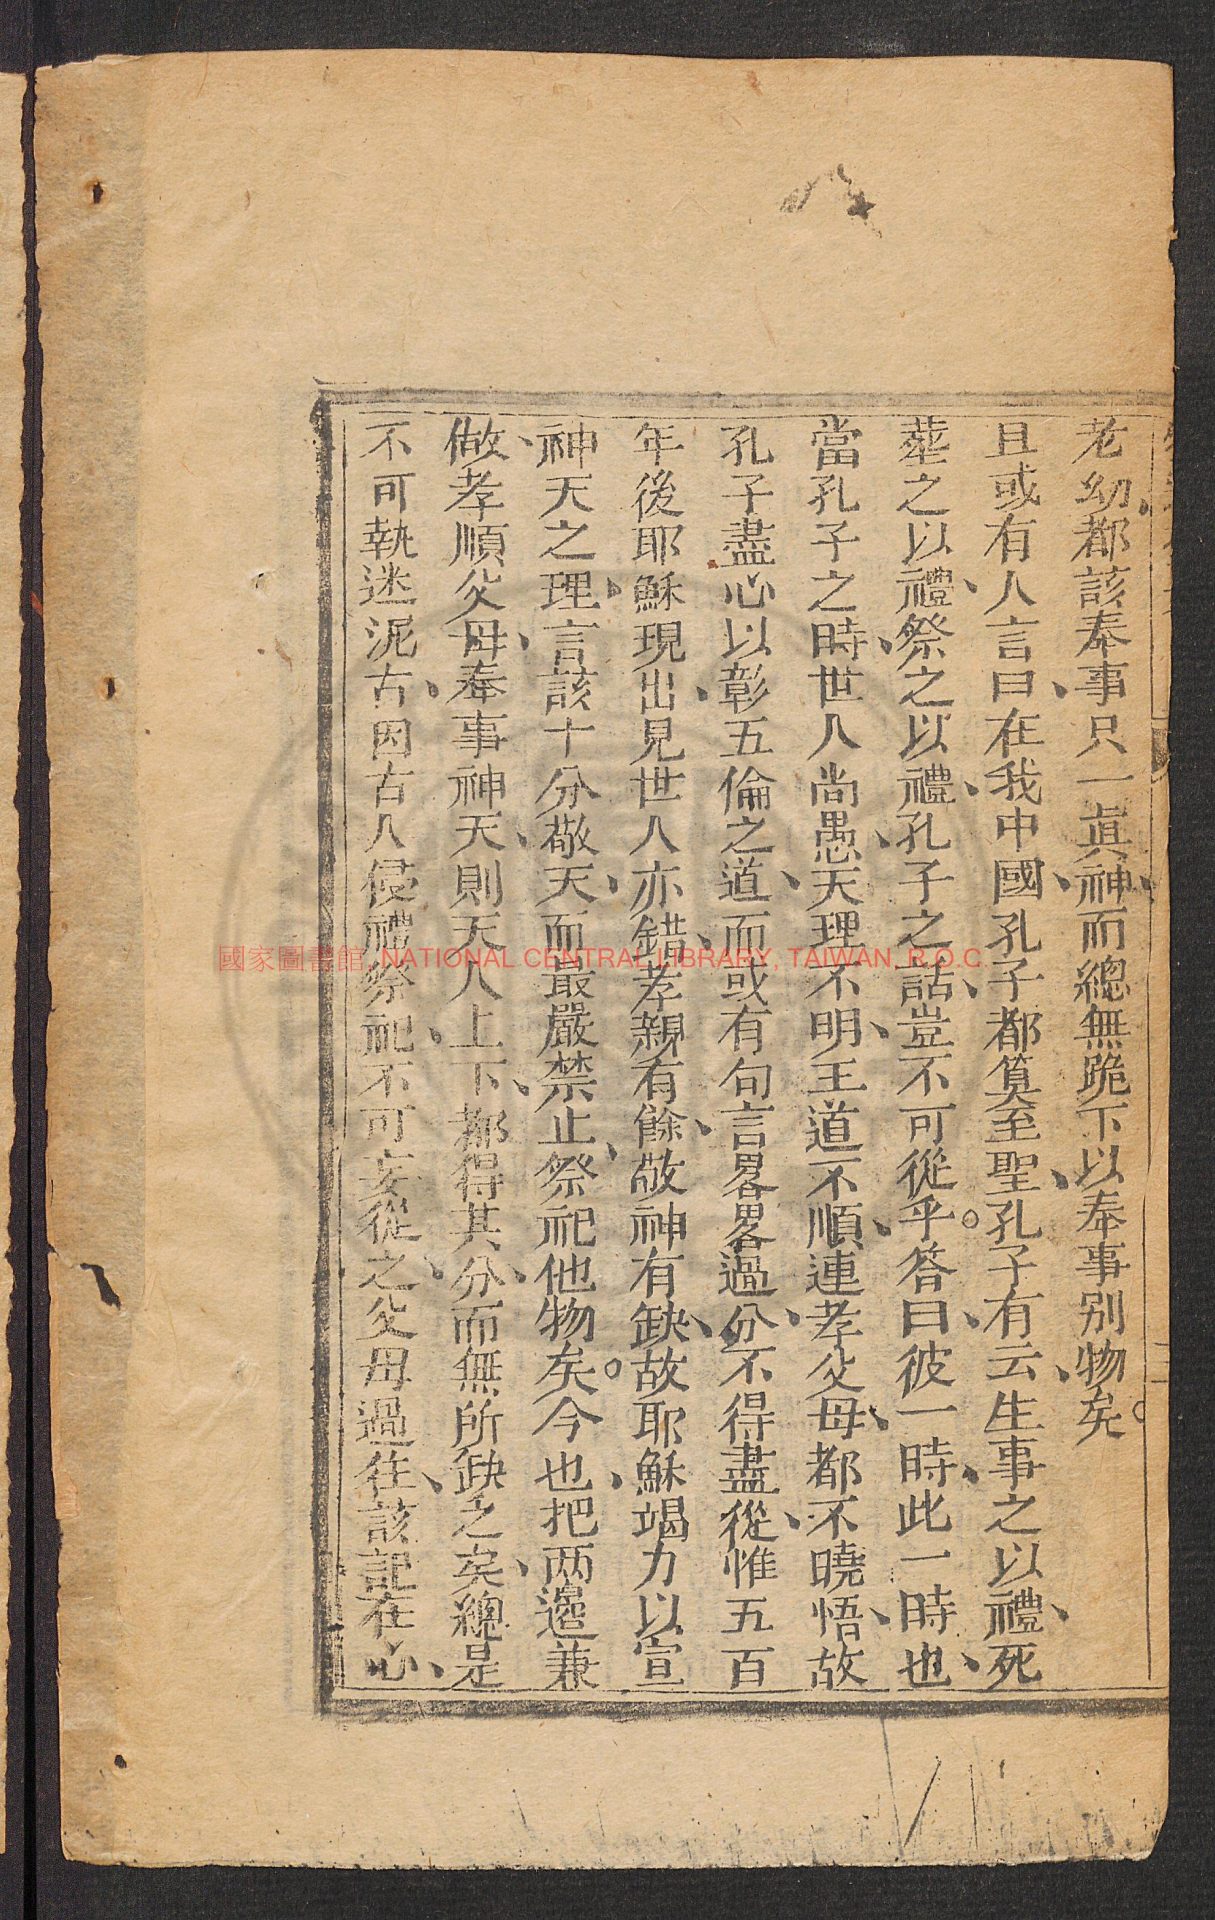 老幼、都該奉事只一眞神、而總無跪下以奉事别物、矣。
且或有人言曰、在我中國、孔子都筭至聖、孔子有云生事之以禮、死
葬之以禮、祭之以禮、孔子之話、豈不可從乎。答曰、彼一時、此一時也、
當孔子之時、世人尚愚、天理不明、王道不順、連孝父母、都不曉悟、故
孔子盡心以彰五倫之道、而或有句言畧畧過分、不得盡從、惟五百
年後耶穌現出、見世人亦錯、孝親有餘、敬神有缺、故耶穌竭力以宣
神天之理、言該十分敬天、而最嚴禁止、祭祀他物矣。今也、把两邉兼
做、孝順父母、奉事神天、則天人上下、都得其分、而無所缺之矣、總是
不可執迷泥古、因古人侵禮祭祀、不可妄從之、父母過往、該記在心、
國家圖書館 NATIONAL CENTRAL LIBRARY, TAIWAN, R.O.C